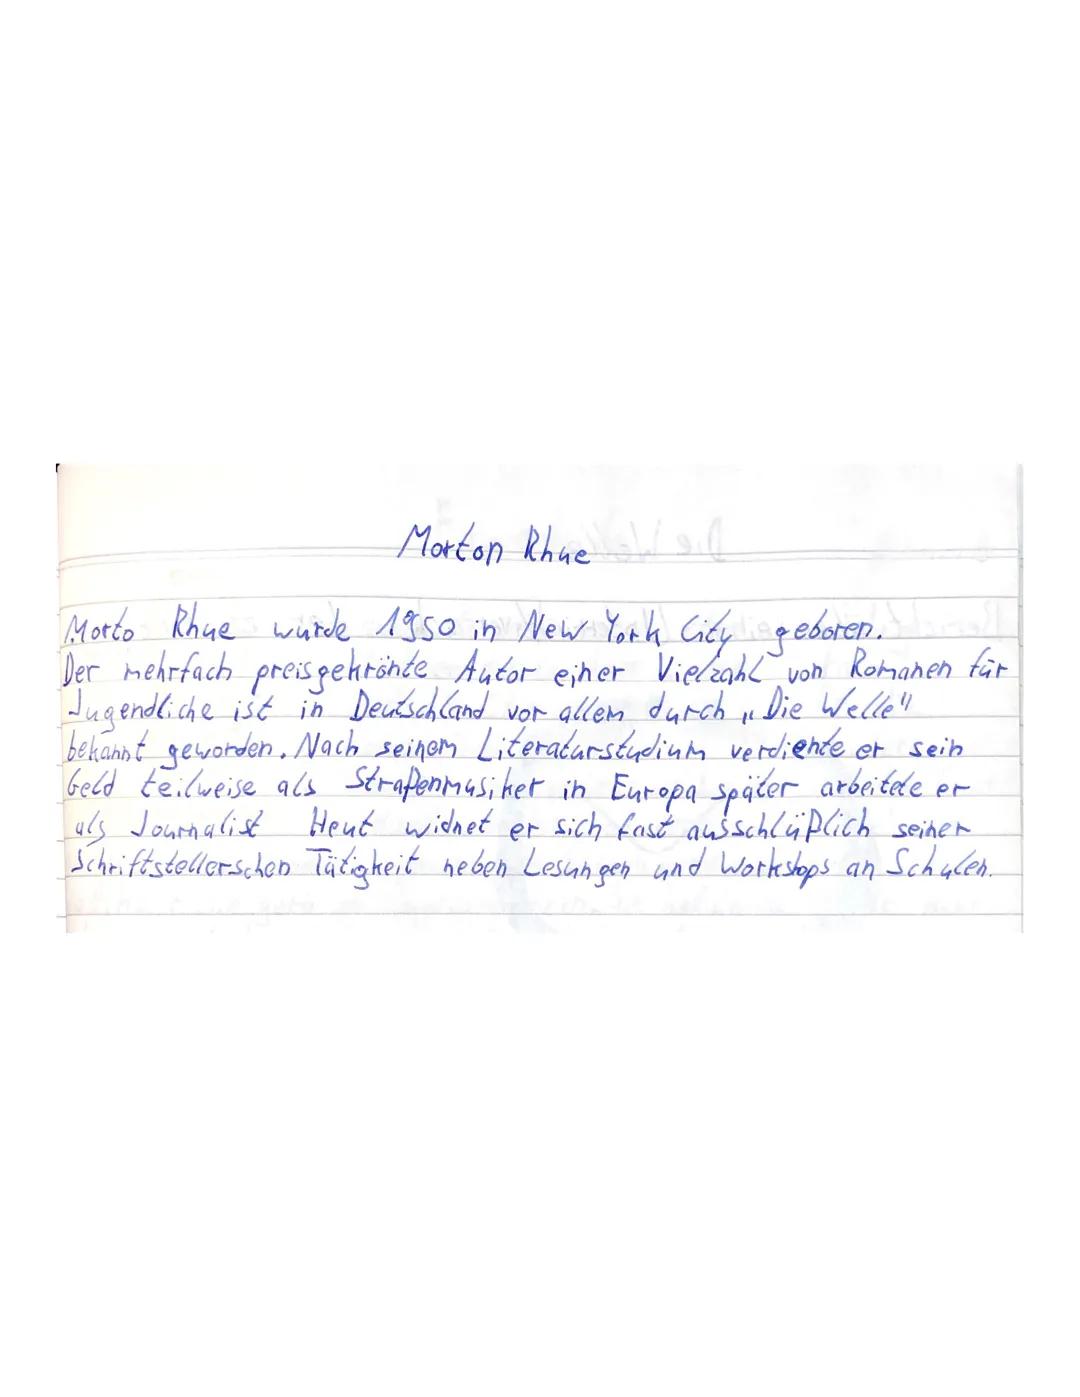 Morton Rhue
Morto Rhue wurde 1950 in New York City geboren.
Der mehrfach preisgekrönte Autor einer Vielzahl von Romanen für
Jugendliche ist in Deutschland vor allem durch „Die Welle"
bekannt geworden. Nach seinem Literaturstudium verdiente er sein
Geld teilweise als Straßenmusiker in Europa später arbeitete er
als Journalist Heut widnet er sich fast ausschlüßlich seiner
Schriftstellerschen Tätigkeit neben Lesungen und Workshops an Schulen.